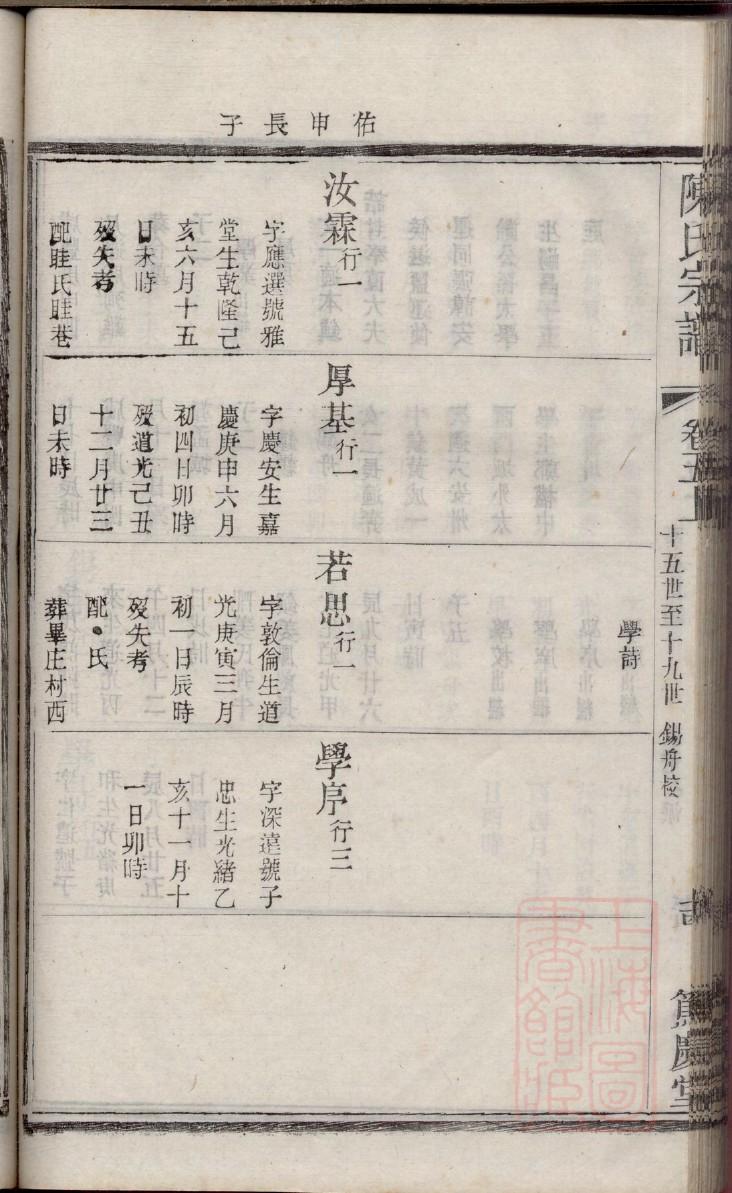 陳氏宗譜
卷五
十五世至十九世 錫舟校
篤慶堂
佑申長子
汝霖行一
字應選號雅
堂生乾隆己
亥六月十五
日未時
歿失考
配眭氏眭巷
厚基行一
字慶安生嘉
慶庚申六月
初四日卯時
歿道光己丑
十二月廿三
日未時
學詩
若思行一
字敦倫生道
光庚寅三月
初一日辰時
歿失考
配•氏
葬畢庄村西
學序行三
字深遠號子
忠生光緒乙
亥十一月十
一日卯時
上海圖
書館藏